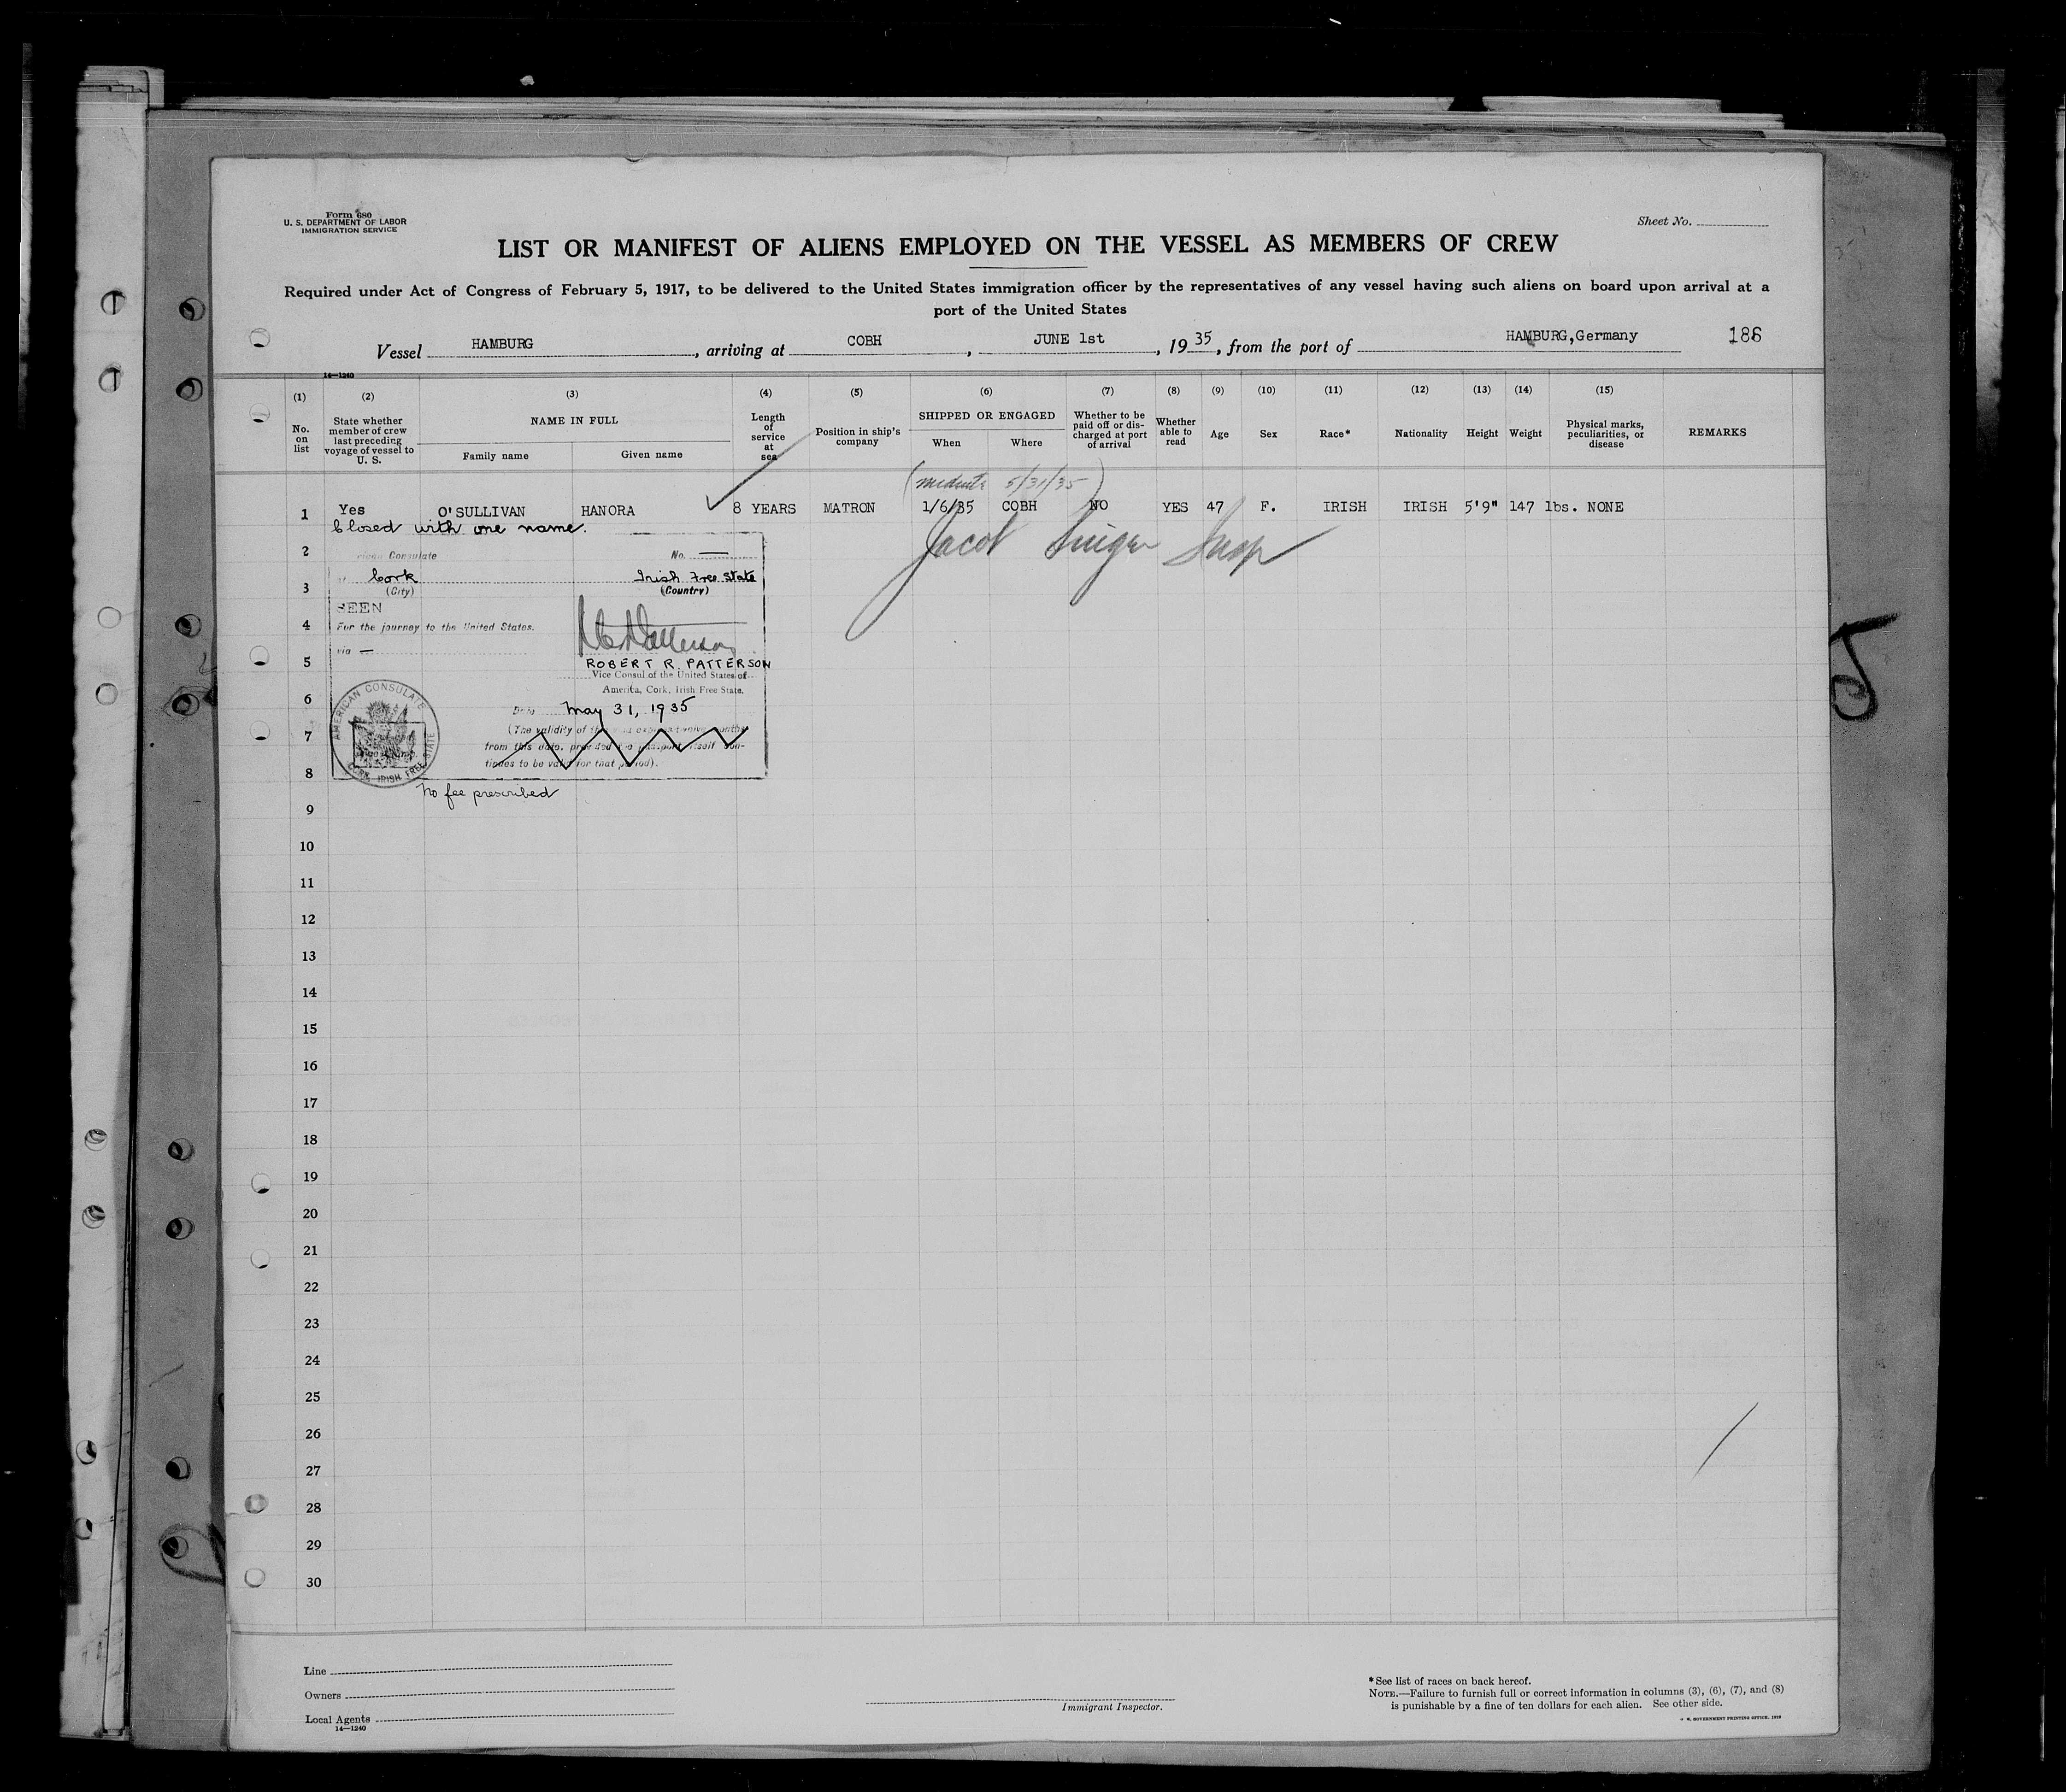 Form 680
U. S. DEPARTMENT OF LABOR
IMMIGRATION SERVICE
Sheet No.
LIST OR MANIFEST OF ALIENS EMPLOYED ON THE VESSEL AS MEMBERS OF CREW
Required under Act of Congress of February 5, 1917, to be delivered to the United States immigration officer by the representatives of any vessel having such aliens on board upon arrival at a
port of the United States
Vessel HAMBURG, arriving at COBH, JUNE 1st, 1935, from the port of HAMBURG, Germany 186
14—1240
(1) (2) (3) (4) (5) (6) (7) (8) (9) (10) (11) (12) (13) (14) (15)
No. on list
State whether member of crew last preceding voyage of vessel to U. S.
NAME IN FULL
Family name
Given name
Length of service at sea
Position in ship's company
SHIPPED OR ENGAGED
When
Where
Whether to be paid off or discharged at port of arrival
Whether able to read
Age
Sex
Race*
Nationality
Height
Weight
Physical marks, peculiarities, or disease
REMARKS
5/31/35
1 Yes O'SULLIVAN HANORA 8 YEARS MATRON 1/6/35 COBH NO YES 47 F. IRISH IRISH 5'9" 147 lbs. NONE
Closed with one name.
Jacob Singer Insp
2
Consulate No. —
Cork Irish Free State
3
(City) (Country)
SEEN
4
For the journey to the United States.
via —
5
ROBERT R. PATTERSON
Vice Consul of the United States of
America, Cork, Irish Free State.
6
Date May 31, 1935
7
(The validity of this visa expires twelve months
from this date, provided the passport itself con-
tinues to be valid for that period).
AMERICAN CONSULATE
CORK, IRISH FREE STATE
8
No fee prescribed
9
10
11
12
13
14
15
16
17
18
19
20
21
22
23
24
25
26
27
28
29
30
Line
Owners
Local Agents
14—1240
Immigrant Inspector.
*See list of races on back hereof.
NOTE.—Failure to furnish full or correct information in columns (3), (6), (7), and (8)
is punishable by a fine of ten dollars for each alien. See other side.
GOVERNMENT PRINTING OFFICE
5